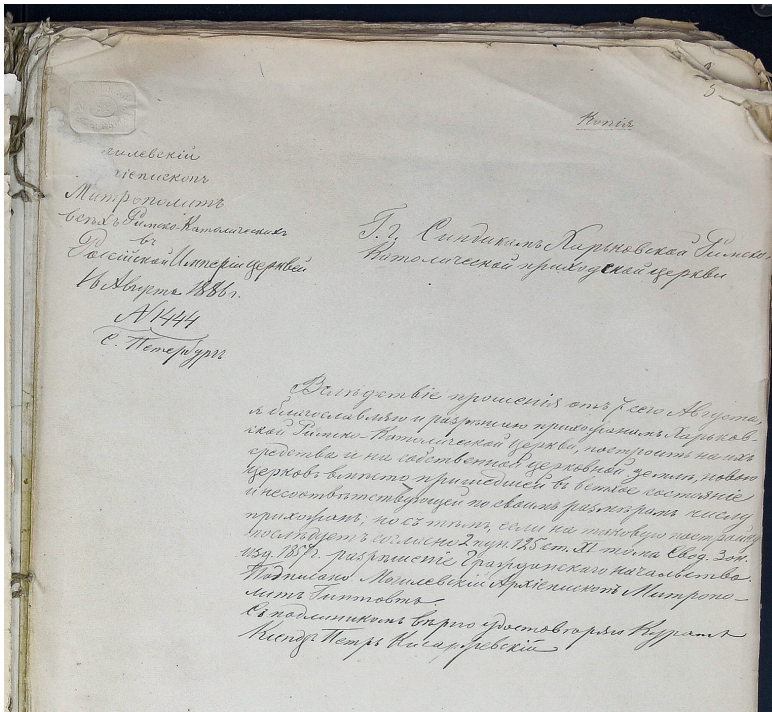 Копія
гилевскій
іепископъ
Митрополитъ
всѣхъ Римско-Католическихъ
въ
Россійской Имперіи церквей
16 Августа 1886 г.
№ 1444
С. Петербургъ
Г.г. Синдикамъ Харьковской Римско-
Католической приходской церкви
Вслѣдствіе прошенія отъ 7 сего Августа,
я благославляю и разрѣшаю прихожанамъ Харьков-
ской Римско-Католической церкви, построить на ихъ
средства и на собственной церковной землѣ, новую
церковь вмѣсто пришедшей въ ветхое состояніе
и несоотвѣтствующей по своимъ размѣрамъ числу
прихожанъ; но съ тѣмъ, если на таковую постройку
послѣдуетъ согласно 2 пун. 125 ст. XI тома Свод. Зак.
изд. 1857 г. разрѣшеніе Гражданскаго начальства.
Подписано Могилевскій Архіепископъ Митропо-
литъ Гинтовтъ
Съ подлинникомъ вѣрно удостовѣряю Куратъ
Ксендзъ Петръ